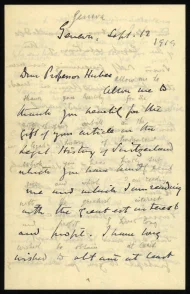 Geneva
Geneva, Sept. 18
191
Dear Professor Huber
Allow me to
thank you heartily for the
gift of your article in the
legal History of Switzerland
which you have kindly
me and which I am reading
with the greatest interest
and profit. I have long
wished to obtain at least